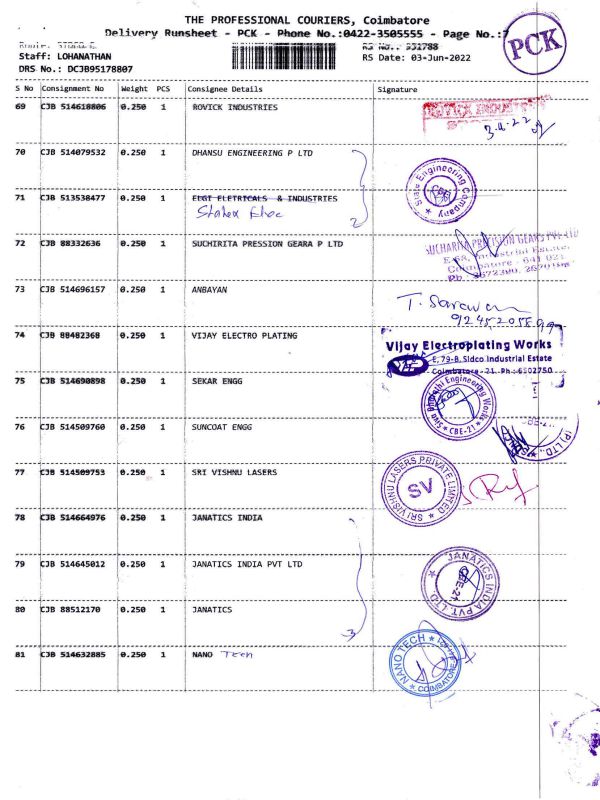 THE PROFESSIONAL COURIERS, Coimbatore
Delivery Runsheet - PCK - Phone No.:0422-3505555 - Page No.:7
PCK
RS No.: 931788
Staff: LOHANATHAN
RS Date: 03-Jun-2022
DRS No.: DCJB95178807
S No Consignment No Weight PCS Consignee Details Signature
69 CJB 514618806 0.250 1 ROVICK INDUSTRIES
70 CJB 514079532 0.250 1 DHANSU ENGINEERING P LTD
State Engineering Company
CBE
71 CJB 513538477 0.250 1 ELGI ELETRICALS & INDUSTRIES
2
72 CJB 88332636 0.250 1 SUCHIRITA PRESSION GEARA P LTD
SUCHARITA PRECISION GEARS PVT LTD
E-6A, Industrial Estate,
Coimbatore - 641 021
73 CJB 514696157 0.250 1 ANBAYAN
74 CJB 88482368 0.250 1 VIJAY ELECTRO PLATING
Vijay Electroplating Works
E, 79-B, Sidco Industrial Estate
Coimbatore - 21. Ph : 6502750
75 CJB 514690898 0.250 1 SEKAR ENGG
Engineering Works
CBE-21
76 CJB 514509760 0.250 1 SUNCOAT ENGG
(P) LTD.,
77 CJB 514509753 0.250 1 SRI VISHNU LASERS
SRI VISHNU LASERS PRIVATE LIMITED
SV
78 CJB 514664976 0.250 1 JANATICS INDIA
79 CJB 514645012 0.250 1 JANATICS INDIA PVT LTD
JANATICS INDIA PVT. LTD
CBE-21
80 CJB 88512170 0.250 1 JANATICS
3
81 CJB 514632885 0.250 1 NANO Tech
NANO TECH
COIMBATORE